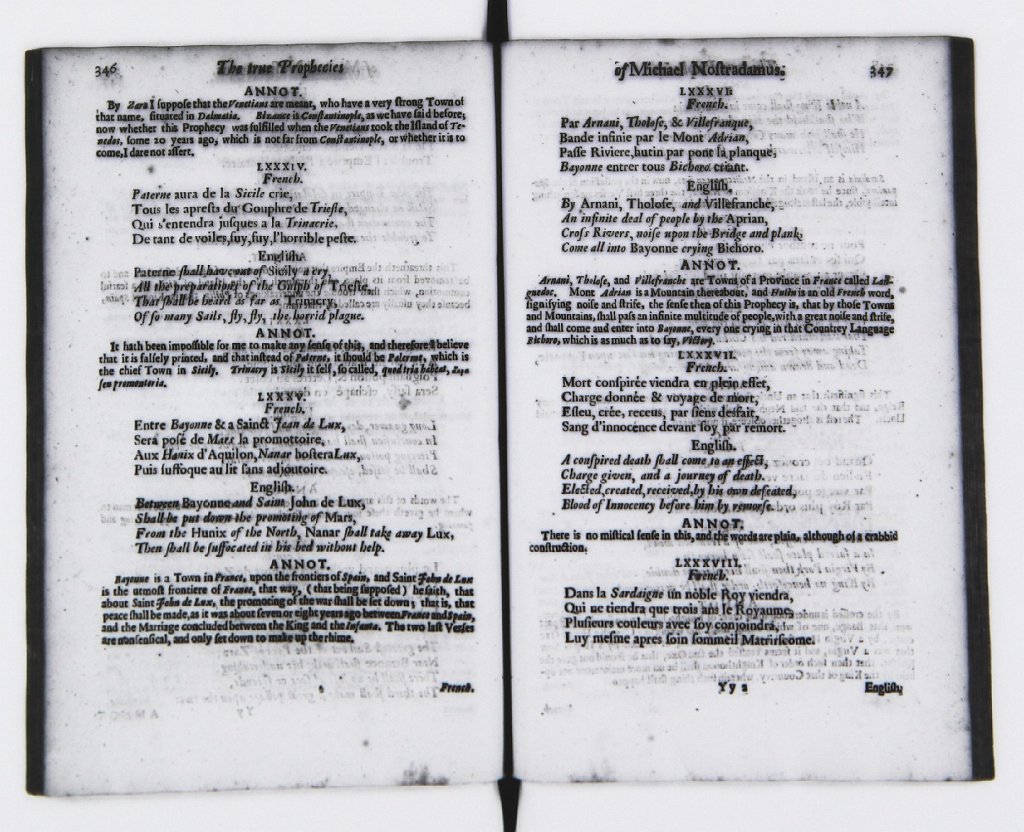 346
The true Prophecies
ANNOT.
By Zara I suppose that the Venetians are meant, who have a very strong Town of
that name, situated in Dalmatia. Bizance is Constantinople, as we have said before;
now whether this Prophecy was fulfilled when the Venetians took the Island of Te-
nedos, some 20 years ago, which is not far from Constantinople, or whether it is to
come, I dare not assert.
LXXXIV.
French.
Paterne aura de la Sicile crie,
Tous les aprests du Gouphre de Trieste,
Qui s'entendra jusques a la Trinacrie,
De tant de voiles, fuy, fuy, l'horrible peste.
English.
Paterne shall have out of Sicily a cry,
All the preparations of the Gulph of Trieste,
That shall be heard as far as Trinacry,
Of so many Sails, fly, fly, the horrid plague.
ANNOT.
It hath been impossible for me to make any sense of this, and therefore I believe
that it is falsely printed, and that instead of Paterne, it should be Palerme, which is
the chief Town in Sicily. Trinacry is Sicily it self, so called, quod tria habeat,
seu promontoria.
LXXXV.
French.
Entre Bayonne & a Sainct Jean de Lux,
Sera posé de Mars la promottoire,
Aux Hanix d'Aquilon, Nanar hostera Lux,
Puis suffoque au lit sans adjoutoire.
English.
Between Bayonne and Saint John de Lux,
Shall be put down the promoting of Mars,
From the Hunix of the North, Nanar shall take away Lux,
Then shall be suffocated in his bed without help.
ANNOT.
Bayonne is a Town in France, upon the frontiers of Spain, and Saint John de Lux
is the utmost frontiere of France, that way, (that being supposed) he saith, that
about Saint John de Lux, the promoting of the war shall be set down; that is, that
peace shall be made, as it was about seven or eight years ago between France and Spain,
and the Marriage concluded between the King and the Infanta. The two last Verses
are nonsensical, and only set down to make up the rhime.
French.
of Michael Nostradamus.
347
LXXXVI.
French.
Par Arnani, Tholose, & Villefranque,
Bande infinie par le Mont Adrian,
Passe Riviere, hutin par pont la planque,
Bayonne entrer tous Bichoro criant.
English.
By Arnani, Tholose, and Villefranche,
An infinite deal of people by the Aprian,
Cross Rivers, noise upon the Bridge and plank,
Come all into Bayonne crying Bichoro.
ANNOT.
Arnani, Tholose, and Villefranche are Towns of a Province in France called Lan-
guedoc. Mont Adrian is a Mountain thereabout, and Hutin is an old French word,
signifying noise and strife, the sense then of this Prophecy is, that by those Towns
and Mountains, shall pass an infinite multitude of people, with a great noise and strife,
and shall come aud enter into Bayonne, every one crying in that Countrey Language
Bichoro, which is as much as to say, Victory.
LXXXVII.
French.
Mort conspirée viendra en plein effet,
Charge donnée & voyage de mort,
Esleu, crée, receus, par siens desfait,
Sang d'innocence devant soy par remort.
English.
A conspired death shall come to an effect,
Charge given, and a journey of death.
Elected, created, received, by his own defeated,
Blood of Innocency before him by remorse.
ANNOT.
There is no mistical sense in this, and the words are plain, although of a crabbid
construction.
LXXXVIII.
French.
Dans la Sardaigne un noble Roy viendra,
Qui ne tiendra que trois ans le Royaume,
Plusieurs couleurs avec soy conjoindra,
Luy mesme apres soin sommeil Matrirscome.
Yy 2
English,